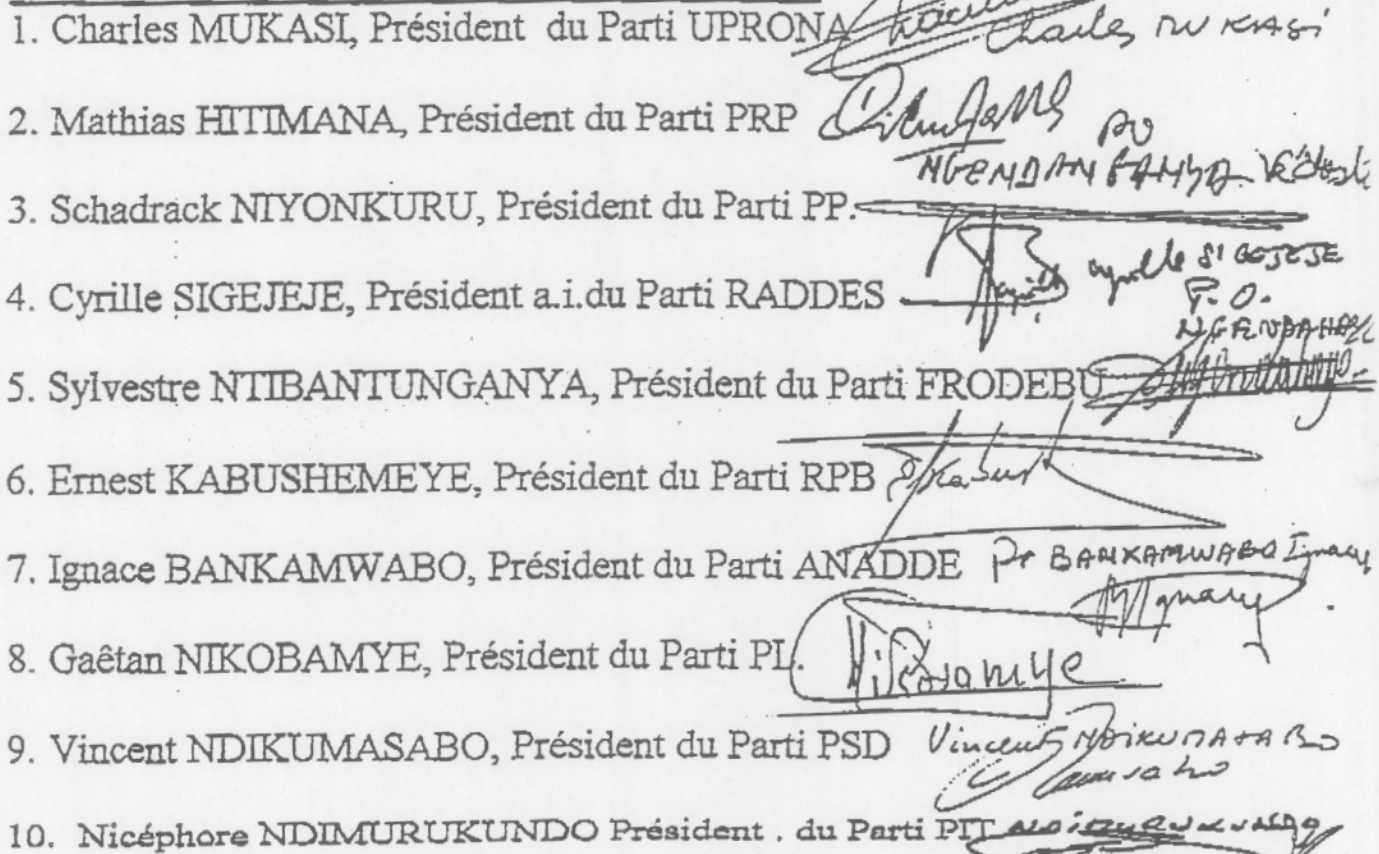 1. Charles MUKASI, Président du Parti UPRONA Charles MUKASI
2. Mathias HITIMANA, Président du Parti PRP
PO
3. Schadrack NIYONKURU, Président du Parti PP.
4. Cyrille SIGEJEJE, Président a.i.du Parti RADDES Cyrille SIGEJEJE
P.O.
5. Sylvestre NTIBANTUNGANYA, Président du Parti FRODEBU
6. Ernest KABUSHEMEYE, Président du Parti RPB
7. Ignace BANKAMWABO, Président du Parti ANADDE Pr BANKAMWABO Ignace
8. Gaêtan NIKOBAMYE, Président du Parti PL. Nikobamye
9. Vincent NDIKUMASABO, Président du Parti PSD Vincent NDIKUMASABO
10. Nicéphore NDIMURUKUNDO Président . du Parti PIT NDIMURUKUNDO